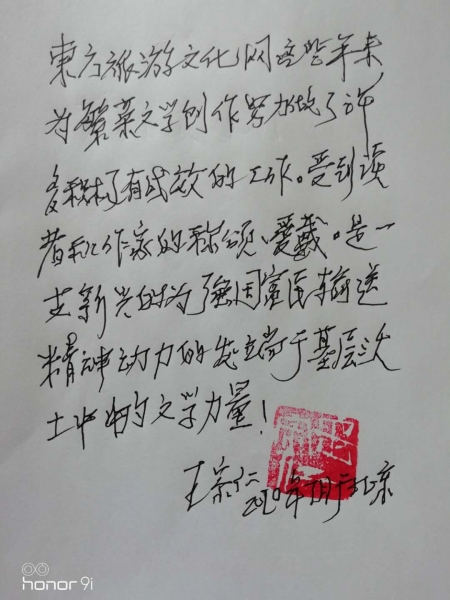 東方旅游文化网这些年来
为繁荣文学创作努力做了许
多积极有成效的工作。受到读
者和作家的称颂、爱戴。是一
支新兴的为强国富民输送
精神动力的发端于基层沃
土中的文学力量！
王宗仁
2020年 于北京
honor 9i